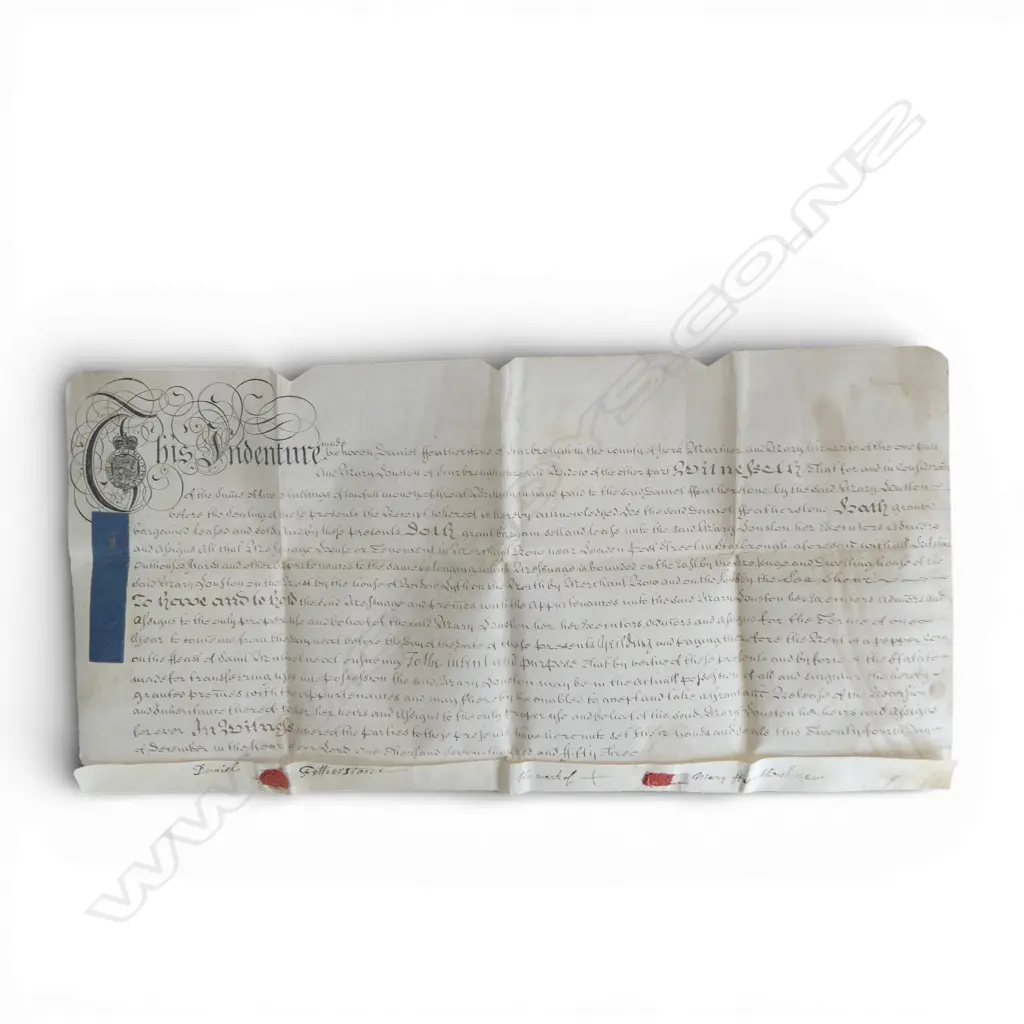 This Indenture made between Daniel Featherstone of Scarbrough in the County of York Mariner and Mary his Wife of the one part
And Mary Houston of Scarbrough Widow of the other part Witnesseth That for and in Consideration
of the Sume of five shillings of lawfull money of Great Brittain in hand paid to the said Daniel Featherstone by the said Mary Houston
before the Sealing of these presents the Receipt whereof is hereby acknowledged He the said Daniel Featherstone Hath granted
bargained leased and sold and by these presents Doth grant bargain sell and lease unto the said Mary Houston her Executors Admors
and Assigns All that Messuage House or Tenement in Merchant Row near Leaden Post Street in Scarbrough aforesaid with all
Outhouses Yards and other appurtenances to the same belonging Messuage is bounded on the East by the Messuage and Dwelling house of the
said Mary Houston on the West by the house of on the North by Merchant Row and on the South by the
To have and to hold the said Messuage and premes with the Appurtenances unto the said Mary Houston her Executors Admors and
Assigns to the only proper use and behoof of the said Mary Houston her Executors Admors and Assigns for the Terme of one
Year to come from the day next before the Day of the date of these presents Yeilding and paying therefore the Rent of a pepper Corn
on the Feast of Saint Michael next ensuing To the intent and purpose That by vertue of these presents and by force of the Statute
made for transferring uses into possession the said Mary Houston may be in the actual possession of all and singular the hereby
granted premes with the appurtenances and may thereby be enabled to accept and take a grant and Release of the Reversion
and Inheritance thereof to her her heirs and Assigns to the only proper use and behoof of the said Mary Houston her heirs and Assigns
for ever In Witness whereof the Parties to these presents have hereunto set their Hands and Seals this Twenty fourth Day
of December in the Year of our Lord One thousand seven hundred and Fifty Three
Daniel Fetherston the mark of + Mary
WWW. .CO.NZ